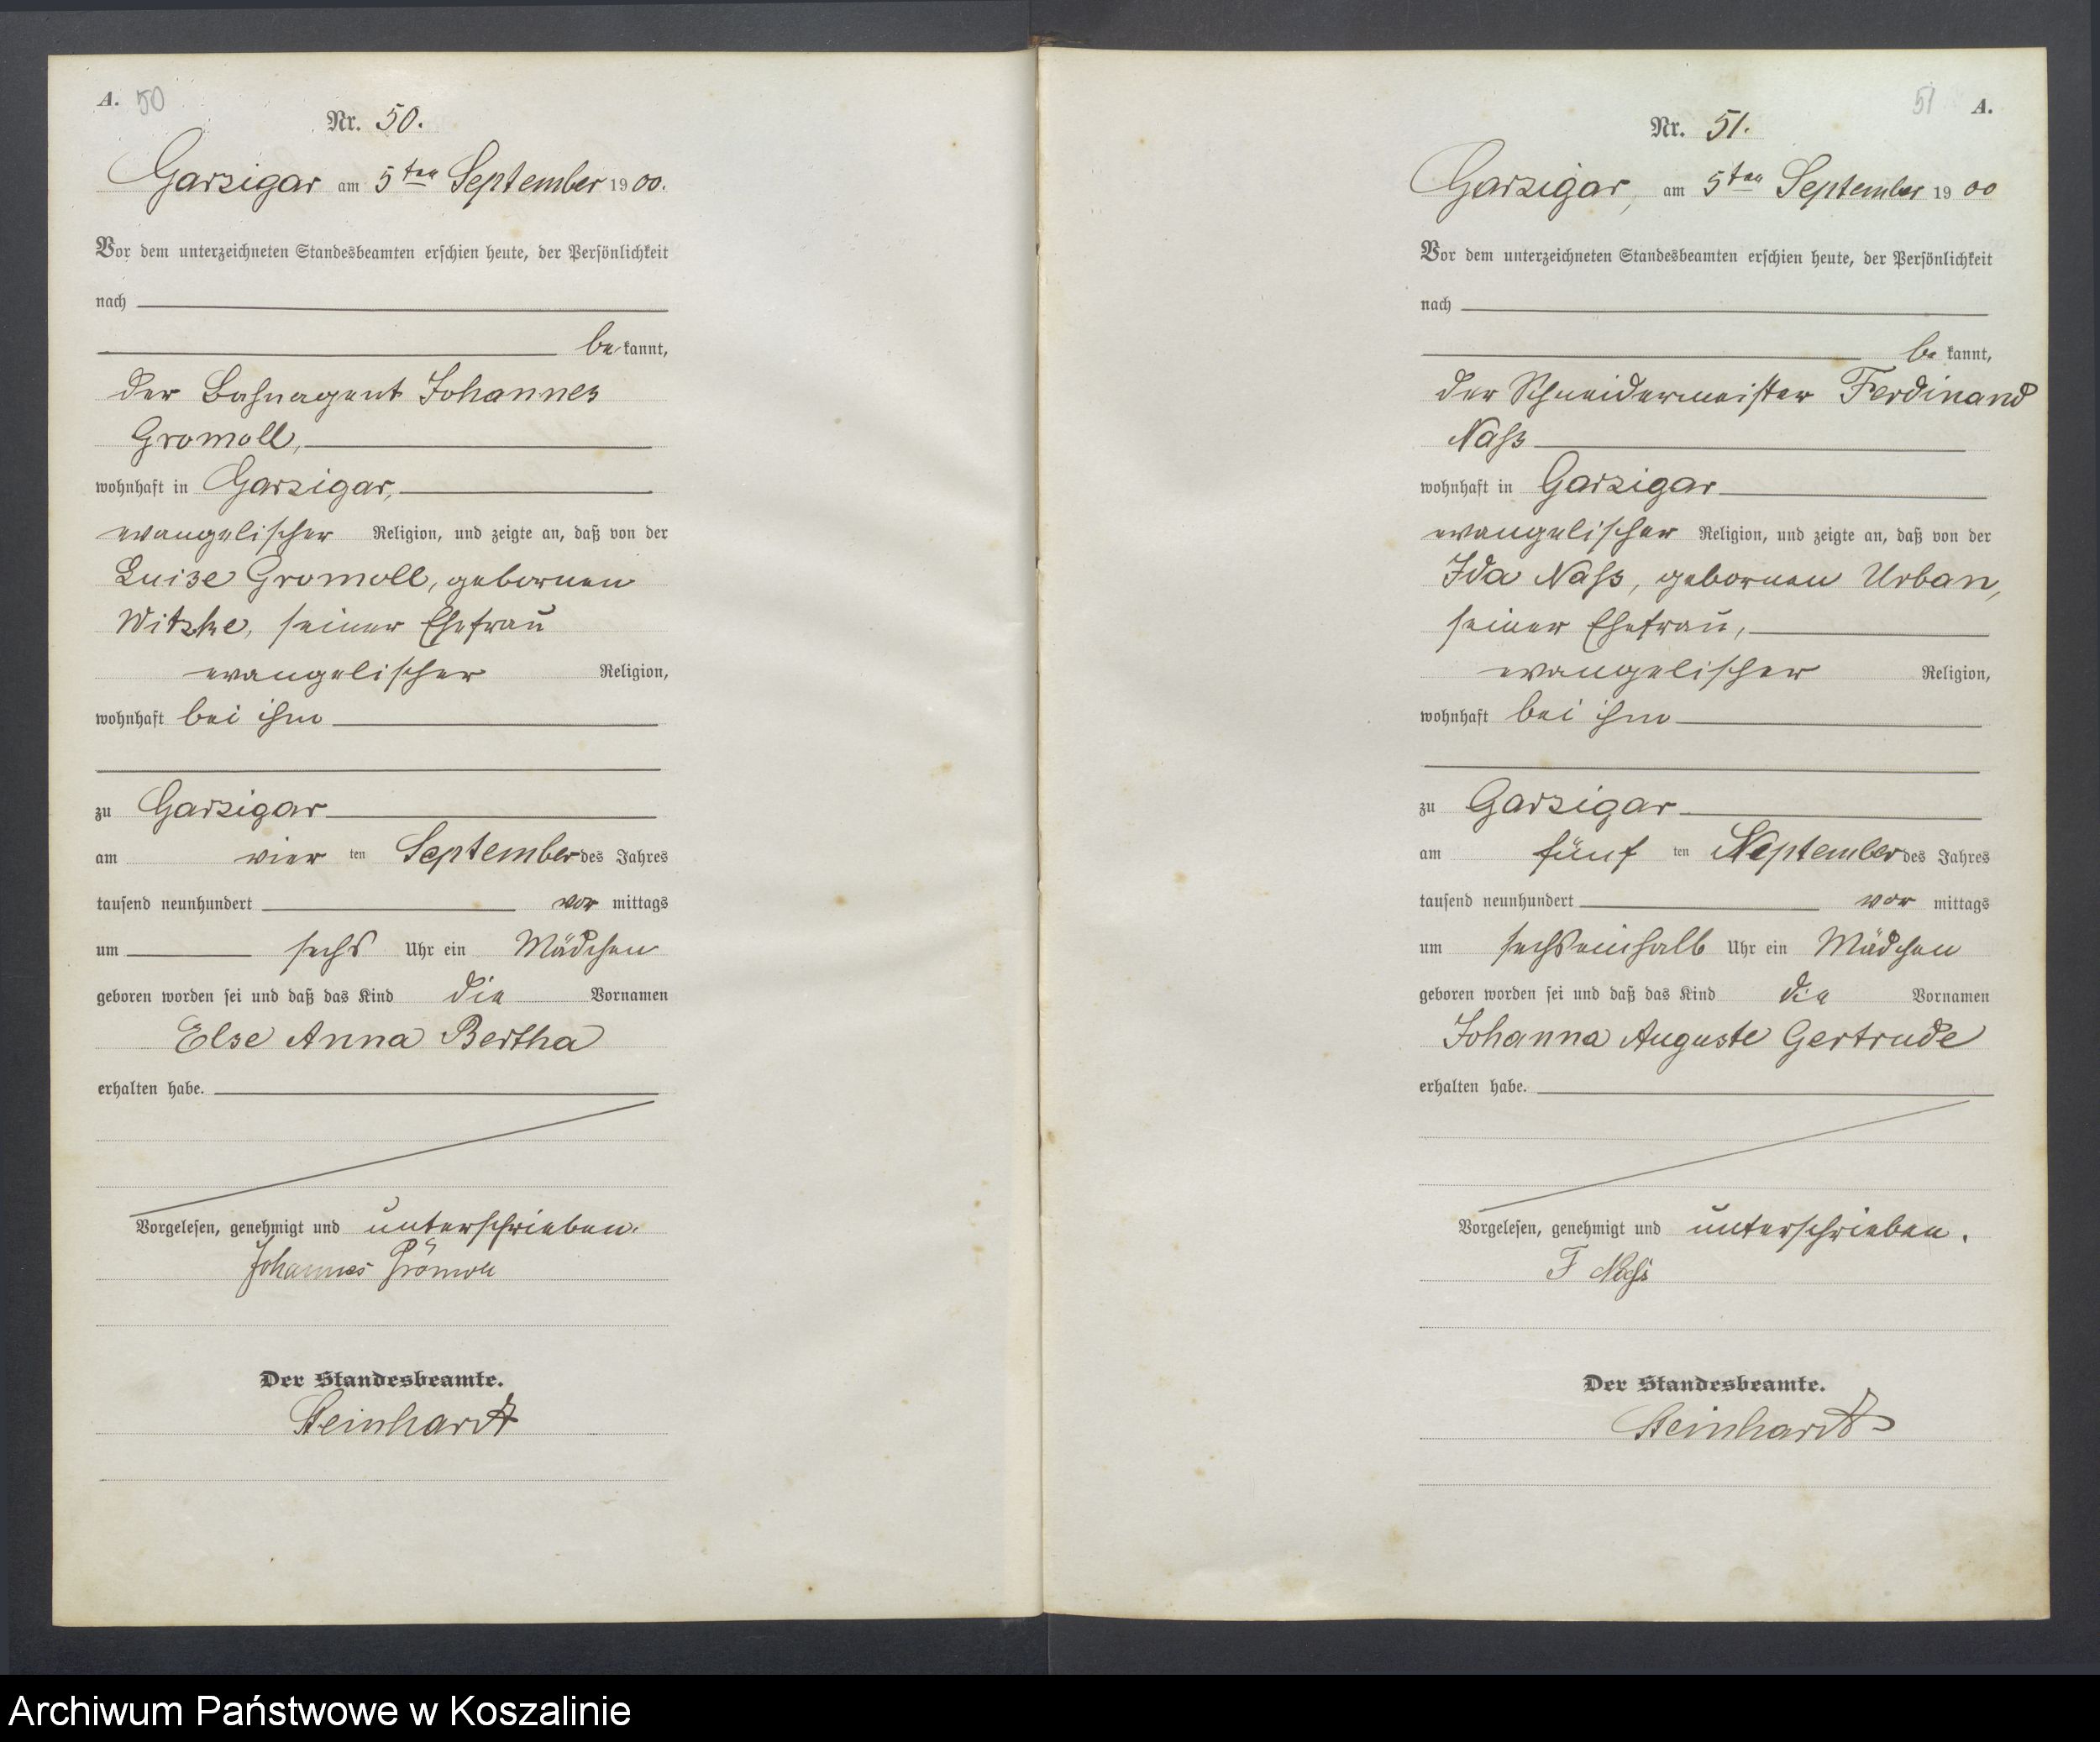 A. 50
Nr. 50.
Garzigar am 5ten September 1900.
Vor dem unterzeichneten Standesbeamten erschien heute, der Persönlichkeit
nach
bekannt,
der Bahnagent Johannes
Gromoll,
wohnhaft in Garzigar,
evangelischer Religion, und zeigte an, daß von der
Luise Gromoll, gebornen
Witzke, seiner Ehefrau
evangelischer Religion,
wohnhaft bei ihm
zu Garzigar
am vier ten September des Jahres
tausend neunhundert vor mittags
um sechs Uhr ein Mädchen
geboren worden sei und daß das Kind die Vornamen
Else Anna Bertha
erhalten habe.
Vorgelesen, genehmigt und unterschrieben.
Johannes Gromoll
Der Standesbeamte.
Steinhardt
51 A.
Nr. 51.
Garzigar, am 5ten September 1900
Vor dem unterzeichneten Standesbeamten erschien heute, der Persönlichkeit
nach
be kannt,
der Schneidermeister Ferdinand
Nass
wohnhaft in Garzigar
evangelischer Religion, und zeigte an, daß von der
Ida Nass, gebornen Urban,
seiner Ehefrau,
evangelischer Religion,
wohnhaft bei ihm
zu Garzigar
am fünf ten September des Jahres
tausend neunhundert vor mittags
um sechseinhalb Uhr ein Mädchen
geboren worden sei und daß das Kind die Vornamen
Johanna Auguste Gertrude
erhalten habe.
Vorgelesen, genehmigt und unterschrieben.
F Nass
Der Standesbeamte.
Steinhardt
Archiwum Państwowe w Koszalinie